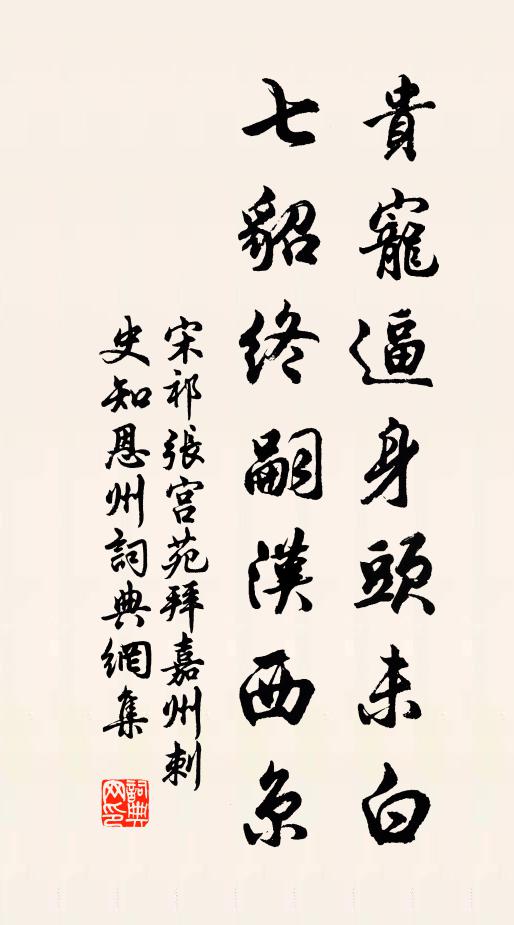 貴寵逼身頭未白
七貂終嗣漢西京
宋祁張宮苑拜嘉州刺
史知恩州詞典網集
詞典網印